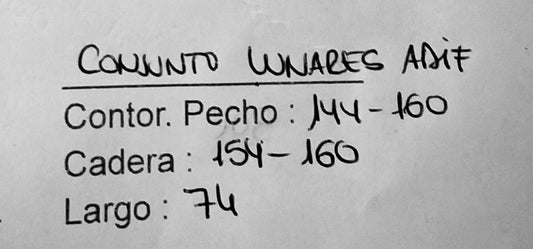 CONJUNTO LUNARES ADIF
Contor. Pecho : 144-160
Cadera : 154-160
Largo : 74